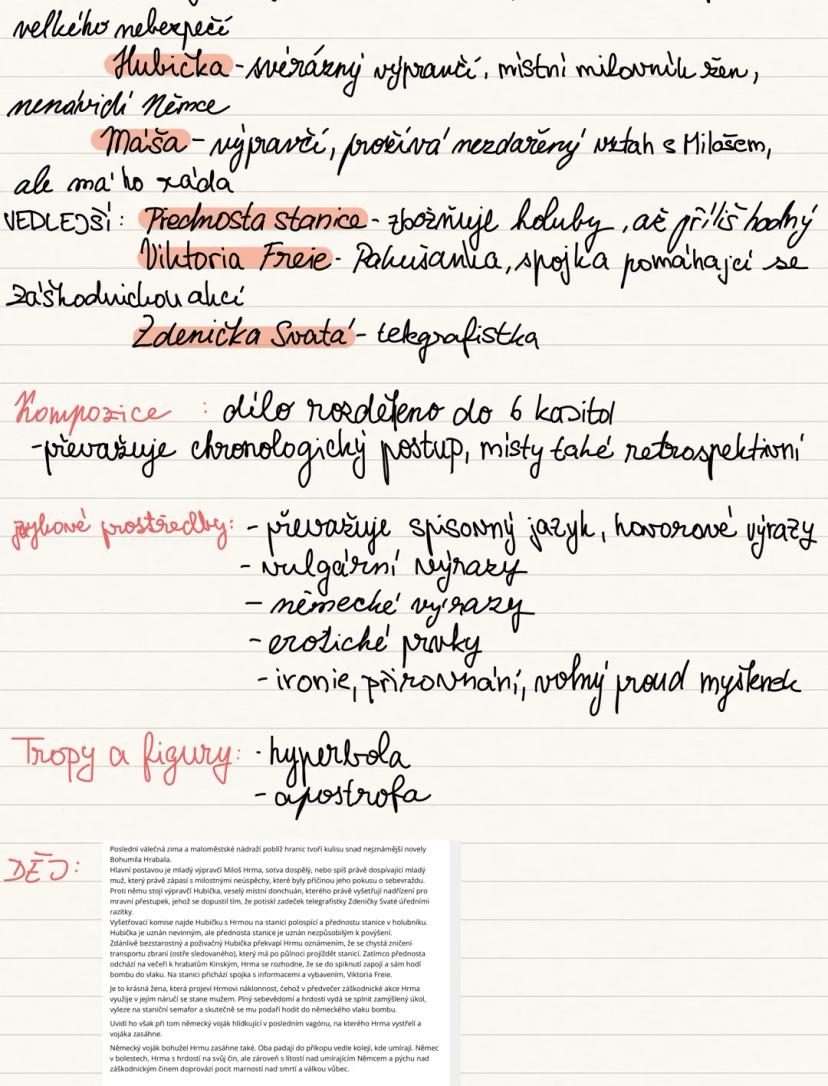 velkého nebezpečí
Hubička - svérázný výpravčí, místní milovník žen,
nenávidí Němce
Máša - výpravčí, prožívá nezdařený vztah s Milošem,
ale má ho ráda
VEDLEJŠÍ: Přednosta stanice - zbožňuje holuby, až příliš hodný
Viktoria Freie - Rakušanka, spojka pomáhající se
záškodnickou akcí
Zdenička Svatá - telegrafistka
Kompozice : dílo rozděleno do 6 kapitol
-převažuje chronologický postup, místy také retrospektivní
jazykové prostředky: - převažuje spisovný jazyk, hovorové výrazy
- vulgární výrazy
- německé výrazy
- erotické prvky
- ironie, přirovnání, volný proud myšlenek
Tropy a figury: - hyperbola
- apostrofa
DĚJ:
Poslední válečná zima a maloměstské nádraží poblíž hranic tvoří kulisu snad nejznámější novely
Bohumila Hrabala.
Hlavní postavou je mladý výpravčí Miloš Hrma, sotva dospělý, nebo spíš právě dospívající mladý
muž, který právě zápasí s milostnými neúspěchy, které byly příčinou jeho pokusu o sebevraždu.
Proti němu stojí výpravčí Hubička, veselý místní donchuán, kterého právě vyšetřují nadřízení pro
mravní přestupek, jehož se dopustil tím, že potiskl zadeček telegrafistky Zdeničky Svaté úředními
razítky.
Vyšetřovací komise najde Hubičku s Hrmou na stanici polospící a přednostu stanice v holubníku.
Hubička je uznán nevinným, ale přednosta stanice je uznán nezpůsobilým k povýšení.
Zdánlivě bezstarostný a poživačný Hubička překvapí Hrmu oznámením, že se chystá zničení
transportu zbraní (ostře sledovaného), který má po půlnoci projíždět stanicí. Zatímco přednosta
odchází na večeři k hrabatům Kinským, Hrma se rozhodne, že se do spiknutí zapojí a sám hodí
bombu do vlaku. Na stanici přichází spojka s informacemi a vybavením, Viktoria Freie.
Je to krásná žena, která projeví Hrmovi náklonnost, čehož v předvečer záškodnické akce Hrma
využije v jejím náručí se stane mužem. Plný sebevědomí a hrdosti vydá se splnit zamýšlený úkol,
vyleze na staniční semafor a skutečně se mu podaří hodit do německého vlaku bombu.
Uvidí ho však při tom německý voják hlídkující v posledním vagónu, na kterého Hrma vystřelí a
vojáka zasáhne.
Německý voják bohužel Hrmu zasáhne také. Oba padají do příkopu vedle kolejí, kde umírají. Němec
v bolestech, Hrma s hrdostí na svůj čin, ale zároveň s lítostí nad umírajícím Němcem a pýchu nad
záškodnickým činem doprovází pocit marnosti nad smrtí a válkou vůbec.